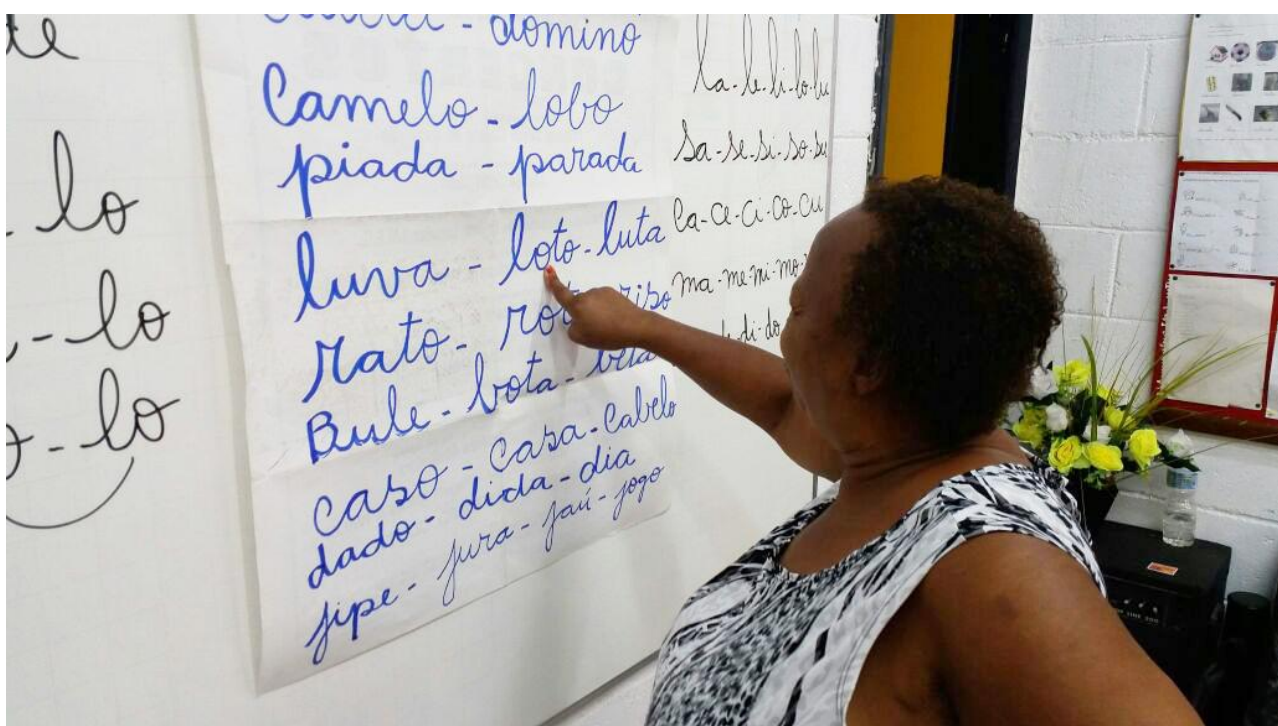 - domino
Camelo - lobo
piada - parada
luva - loto - luta
rato -
Bule - bota -
caso - casa - Cabelo
dado - dida - dia
jipe - jura - jaú - jogo
la - le - li - lo - lu
Sa - se - si - so - su
Ca - ce - ci - co - cu
ma - me - mi - mo -
di - do
- lo
- lo
- lo